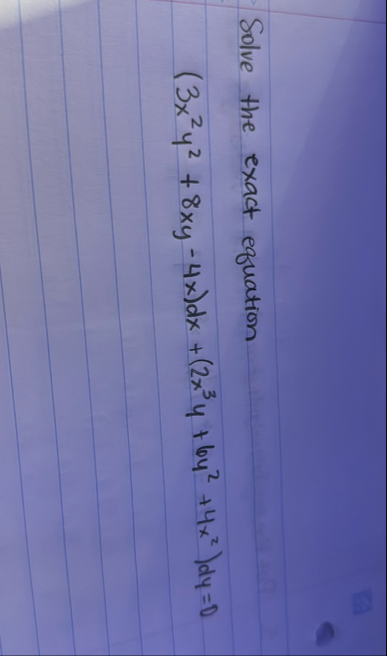 Solve the exact equation
(3x²y² + 8xy - 4x)dx + (2x³y + 6y² + 4x²)dy = 0